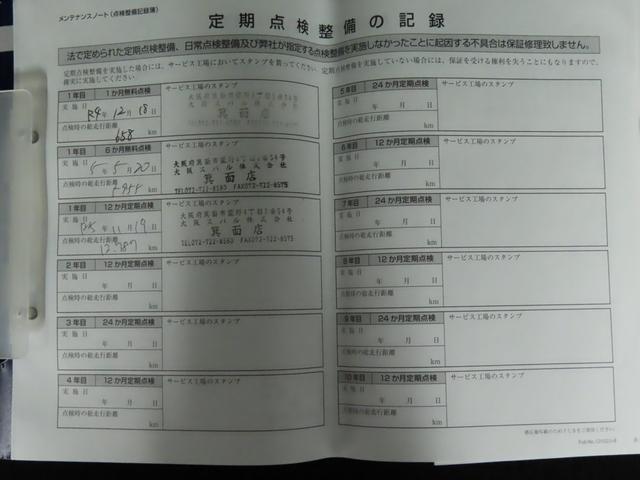 メンテナンスノート(点検整備記録簿)
定期点検整備の記録
法で定められた定期点検整備、日常点検整備及び弊社が指定する点検整備を実施しなかったことに起因する不具合は保証修理致しません。
定期点検整備を実施した場合には、サービス工場においてスタンプを貰ってください。定期点検整備を実施していない場合には、保証を受ける権利を失うこともなりますので、
確実に実施してください
1年目 1か月無料点検 サービス工場のスタンプ
実施日
R4年12月18日
点検時の総走行距離
658 km
箕面店
1年目 6か月無料点検 サービス工場のスタンプ
実施日
5年5月20日
点検時の総走行距離
km
大阪スバル株式会社
箕面店
TEL072-722-8180 FAX072-722-8575
1年目 12か月定期点検 サービス工場のスタンプ
実施日
R5年11月19日
点検時の総走行距離
12,787 km
大阪スバル株式会社
箕面店
2年目 12か月定期点検 サービス工場のスタンプ
実施日
年 月 日
点検時の総走行距離
km
3年目 24か月定期点検 サービス工場のスタンプ
実施日
年 月 日
点検時の総走行距離
km
4年目 12か月定期点検 サービス工場のスタンプ
実施日
年 月 日
点検時の総走行距離
km
5年目 24か月定期点検 サービス工場のスタンプ
実施日
年 月 日
点検時の総走行距離
km
6年目 12か月定期点検 サービス工場のスタンプ
実施日
年 月 日
点検時の総走行距離
km
7年目 24か月定期点検 サービス工場のスタンプ
実施日
年 月 日
点検時の総走行距離
km
8年目 12か月定期点検 サービス工場のスタンプ
実施日
年 月 日
点検時の総走行距離
km
9年目 24か月定期点検 サービス工場のスタンプ
実施日
年 月 日
点検時の総走行距離
km
10年目 12か月定期点検 サービス工場のスタンプ
実施日
年 月 日
点検時の総走行距離
km